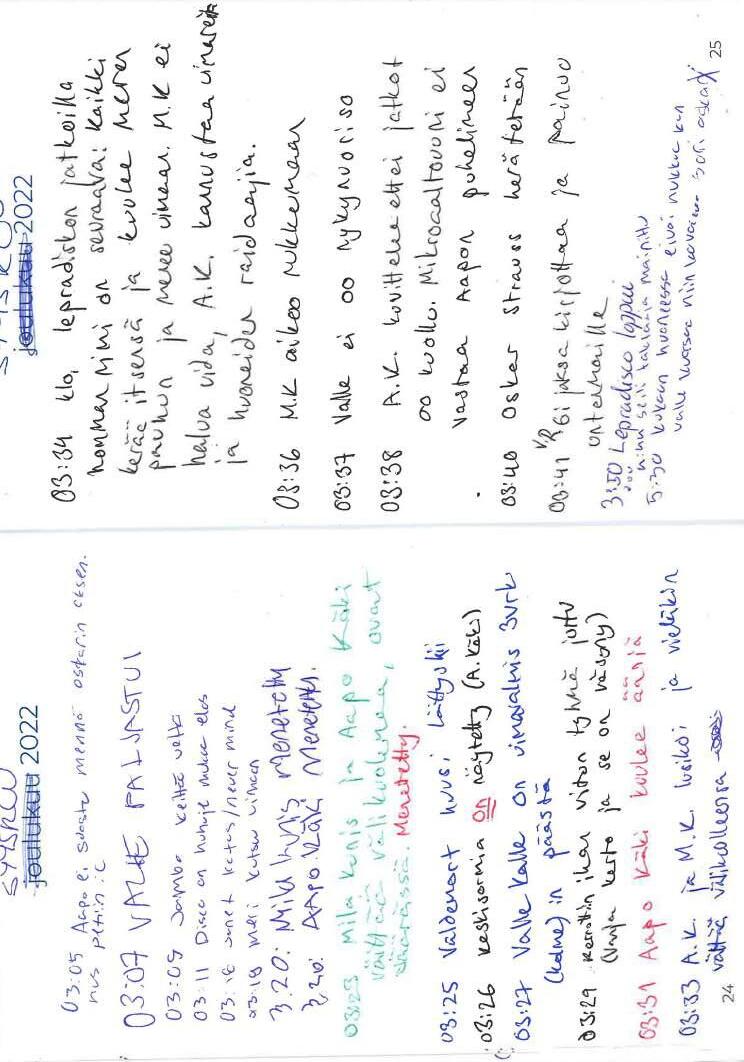 SYYSKUU
joulukuu 2022
03:05 Aapo ei suostu menno ostarin eksen.
nus petriin :c
03:07 VALHE PALJASTUI
03:09 keittä vettä
03:11 Disco on muhuje mukaa elos
03:18 sanet kehas/never mind
03:19 meri katsu vihaan
3.20: Mila Kunis menetetty
3.20: AAPO KÄKI Menetetty.
03:23 Mila Kunis ja Aapo Käki
väittää välikuolemaa, ovat
väärässä. Menetetty.
03:25 Valdemort huusi läättyskii
03:26 keskisormia on näytetty (A. Käki)
03:27 Valle Kalle on uimavalmis 3vrk
(kolme) in päästä
03:29 kerrottiin ihan viton tyhmä juttu
(Vanja kerto ja se on väsony)
03:31 Aapo Käki kuulee ääniä
03:33 A.K. ja M.K. lusikoi ja vieläkin
väittää välikuolleensa
24
SYYSKUU
joulukuu 2022
03:34 klo, lepradiskon jatkoilla
homman nimi on seuraava: kaikki
kerää itsensä ja kuulee meren
pauhun ja menee uimaan. M.K ei
halua uida, A.K. kannustaa uimareita
ja huoneiden raidaajia.
03:36 M.K aikoo nukkumaan
03:37 Valle ei oo nykynuoriso
03:38 A.K. kuvittelee ettei jatkot
oo kuollu. Mikroaaltouuni ei
vastaa Aapon puhelimeen
03:40 Oskar Strauss herätetään
03:41 VR ei jaksa kirjottaa ja painuu
untenmaille
3:50 Lepradisco loppuu
niinku seli takianja mainittu
5:30 kukaan huoneessa eivoi nukkuu kun
valle kuorsaa niin kovaa sori oskari
25